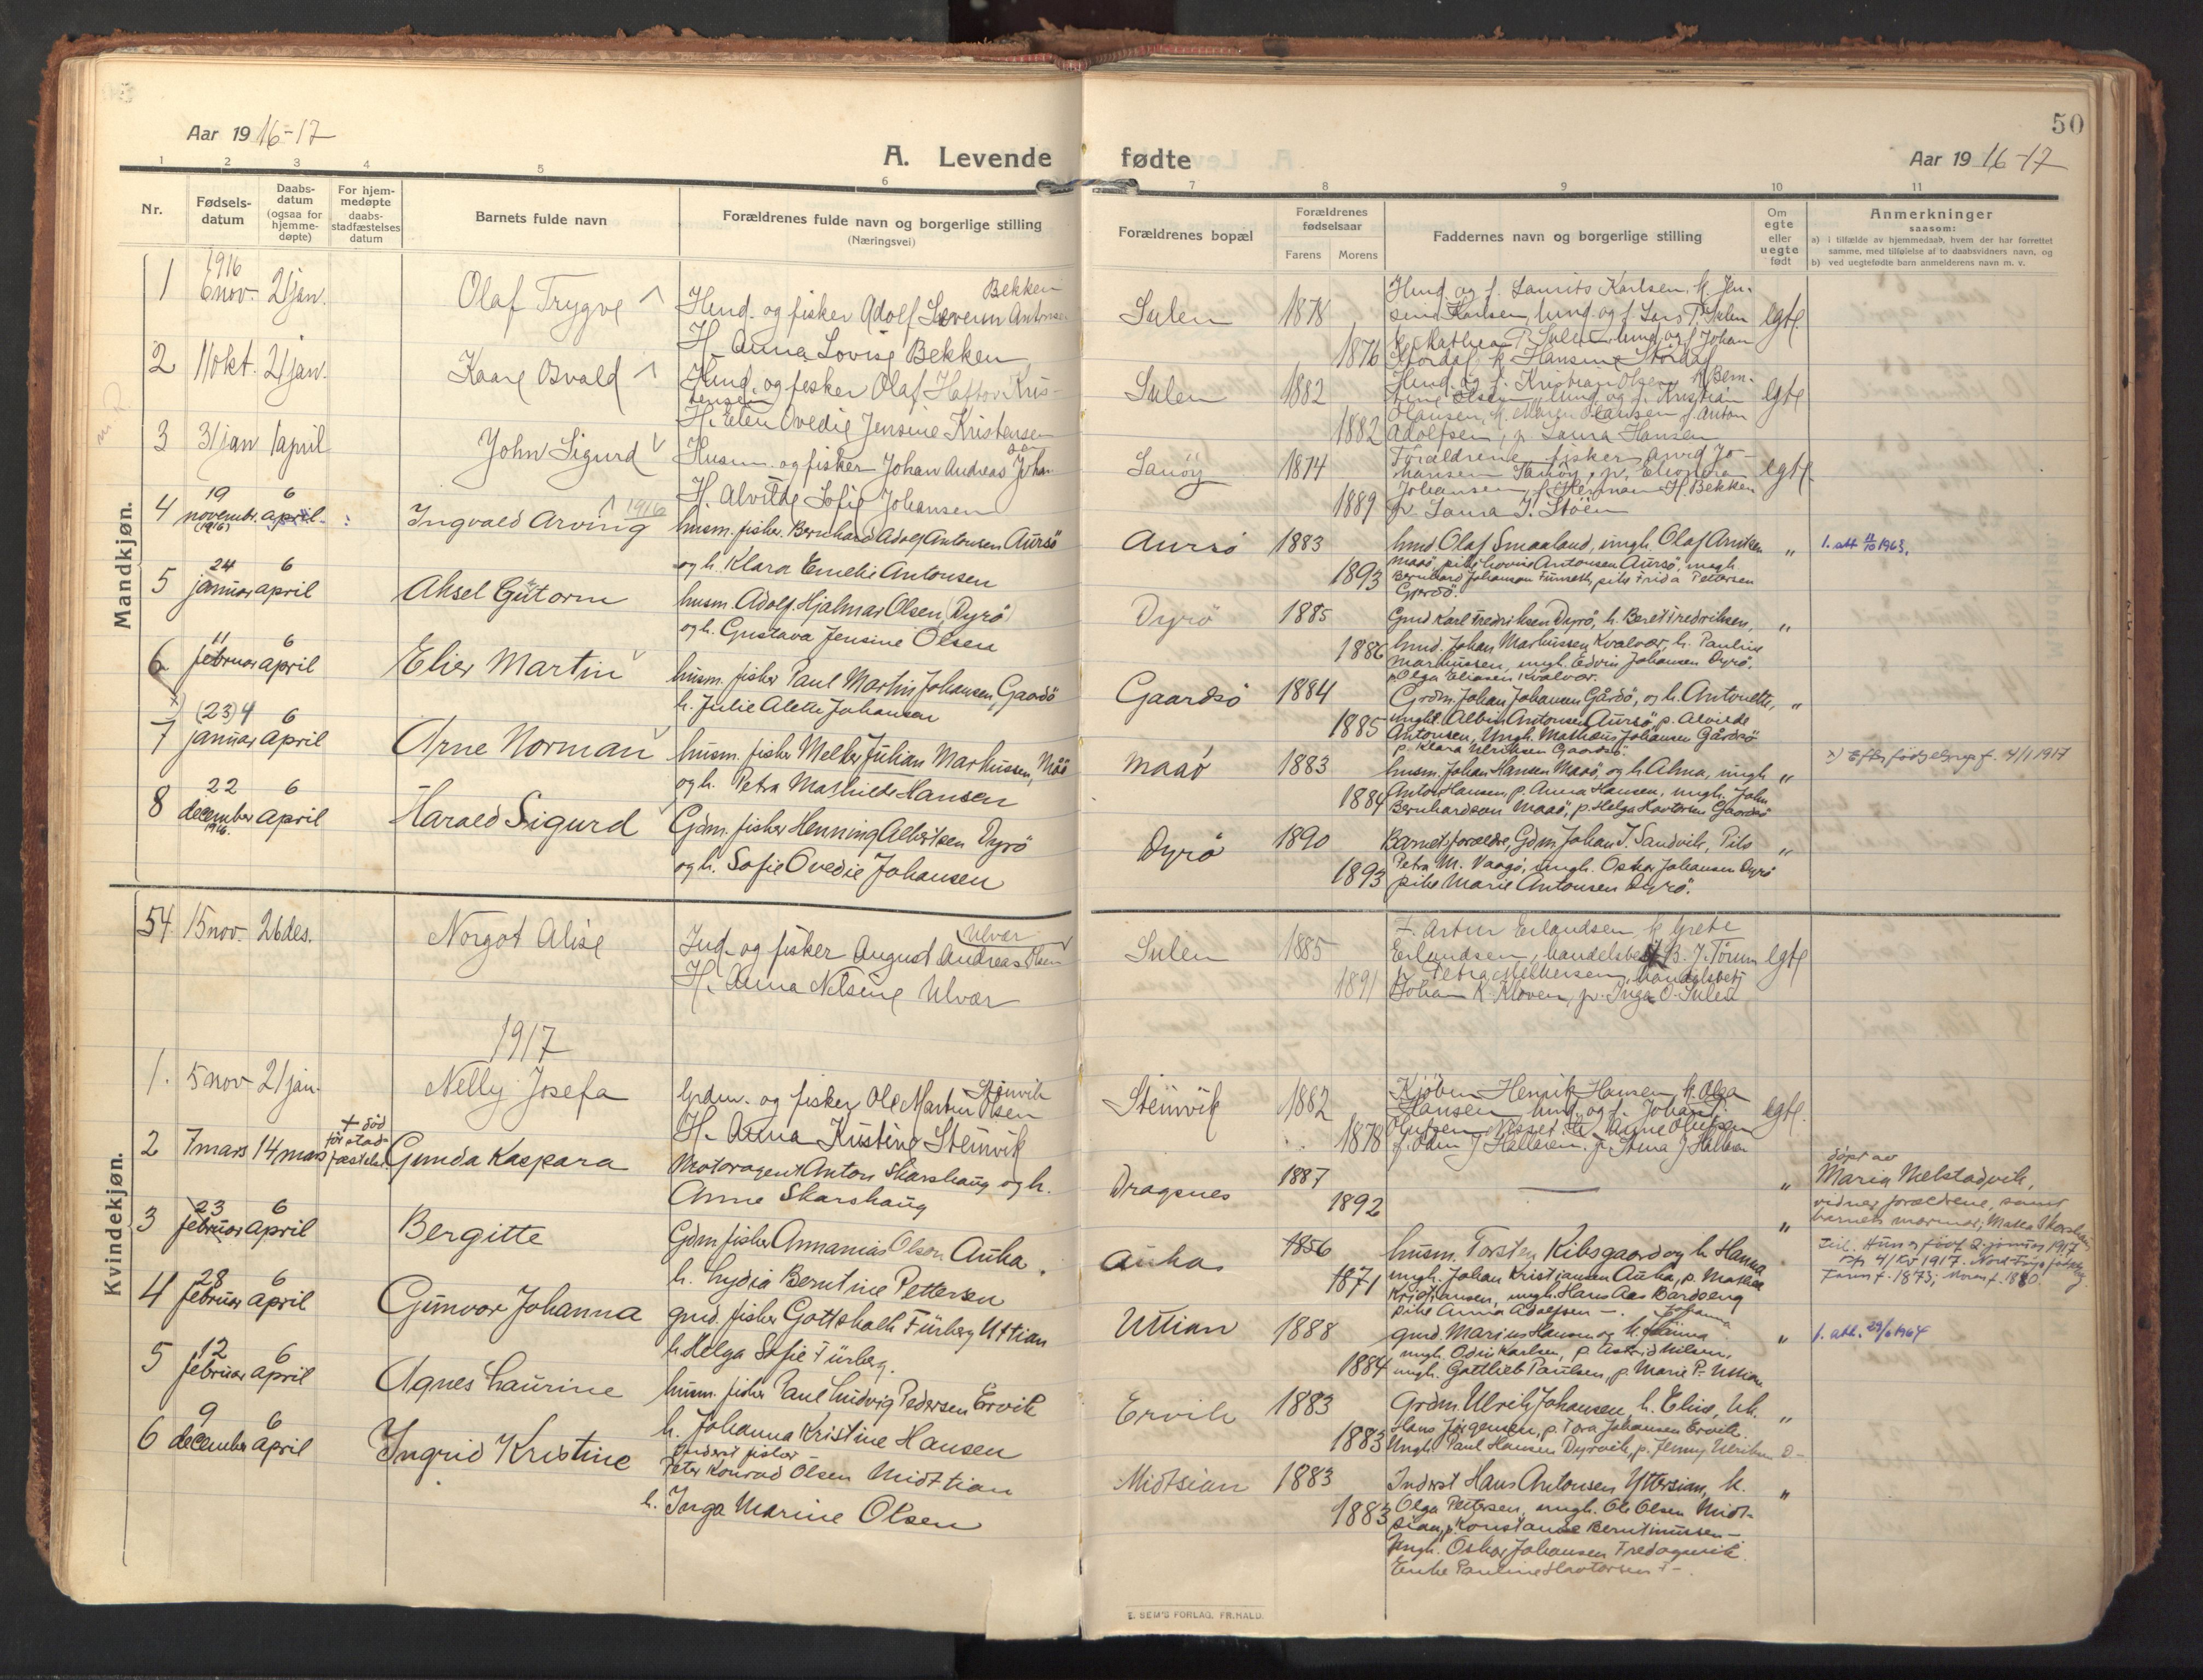 Aar 1916-17
A. Levende fødte
50
Aar 1916-17
1 2 3 4 5 6 7 8 9 10 11
Nr.
Fødsels-
datum
Daabs-
datum
(ogsaa for
hjemme-
døpte)
For hjem-
medøpte
daabs-
stadfæstelses
datum
Barnets fulde navn
Forældrenes fulde navn og borgerlige stilling
(Næringsvei)
Forældrenes bopæl
Forældrenes
fødselsaar
Farens Morens
Faddernes navn og borgerlige stilling
Om
egte
eller
uegte
født
Anmerkninger
saasom:
a) i tilfælde av hjemmedaab, hvem der har forrettet
samme, med tilføielse af to daabsvidners navn, og
b) ved uegtefødte barn anmelderens navn m. v.
Mandkjøn.
1 1916 6 nov. 21 jan. Olaf Trygve
Bekken
Hmd. og fisker Adolf Severin Antonsen
H. Anna Lovise Bekken
Sulen 1878 1876
Hmd. og f. Laurits Karlsen, k. Jen-
sine Karlsen, hmd. og f. Lars P. Sulen
k. Mathea P. Sulen, hmd. og f. Johan
Stordal k. Hansine Stordal
egte
2 11 okt. 21 jan. Kaare Osvald
Hmd. og fisker Olaf Haftor Kris-
tensen
H. Elen Ovedie Jensine Kristensen
Sulen 1882 1882
Hmd. og f. Kristian Olsen, k. Bern-
tine Olsen, hmd. og f. Kristian
Olausen, k. Maren Olausen, f. Anton
Adolfsen, p. Laura Hansen
egte
3 31 jan 1 april John Sigurd
Husm. og fisker Johan Andreas Johan-
sen
H. Alvilde Sofie Johansen
Sanöy 1874 1889
Forældrene, fisker Arvid Jo-
hansen Sanöy, p. Elionora
Johansen, f. Herman H. Bekken
p. Laura J. Stöen
egte
4 19 novembr. (1916) 6 april Ingvald Arving 1916
husm. fisker. Bernhard Adolf Antonsen Aursö
og h. Klara Emelie Antonsen
Aursö 1883 1893
hmd Olaf Smaaland, ungk. Olaf Antsen
Maaö, pike Lovise Antonsen Aursö, ungk.
Bernhard Johanson Furneset, pike Frida Pettersen
Gjerdsö.
" 1. att 11/10 1963.
5 24 januar 6 april Aksel Gutorm
husm. Adolf Hjalmar Olsen, Dyrö
og h. Gustava Jensine Olsen
Dyrö 1885 1886
Gmd Karl Fredriksen Dyrö, h. Beret Fredriksen,
hmd. Johan Markussen Kvalvær, h. Pauline
Markussen, ungk. Edvin Johansen Dyrö.
p. Olga Eliasen Kvalvær.
"
6 11 februar 6 april Elier Martin
husm. fisker Paul Martin Johansen, Gaardö
h. Julie Alette Johansen
Gaardsö 1884 1885
Grdm. Johan Johansen Gårdö, og h. Antonette,
ungk. Albin Antonsen Aursö, p. Alvilde
Antonsen, Ungk. Mathæus Johansen Gårdsö
p. Klara Ulriksen Gaardsö
"
7 (23) 4 januar 6 april Arne Norman
husm. fisker Melker Julian Markussen, Måö
og h. Petra Mathilde Hansen
Maaö 1883 1884
husm. Johan Hansen Maaö, og h. Alma, ungk
Anton Hansen, p. Anna Hansen, ungk. John
Bernhardsen Maaö, p. Helga Havtorsen Gaardsö
" x) Efter födselsreg. f. 4/1 1917
8 22 december 1916. 6 april Harald Sigurd
Gdm. fisker Henning Albertsen Dyrö
og h. Sofie Ovedie Johansen
Dyrö 1890 1893
Barnets forældre, Gdm Johan J. Sandvik, Pike
Petra M. Vaagö, ungk. Oskar Johansen Dyrö
pike Marie Antonsen Dyrö.
"
Kvindekjøn.
54. 15 nov. 26 des. Norgot Alise
Ulvær
Ind. og fisker August Andreas Olsen
H. Anna Nilsine Ulvær
Sulen 1885 1891
F. Artur Erlandsen, k. Grete
Erlandsen, handelsbetj. B. J. Törum
p. Petra Melkersen, handelsbetj
Johan K. Kloven, p. Inga O. Sulen
egte
1917
1. 5 nov 21 jan. Nelly Josefa
Steinvik
Grdm. og fisker Ole Martin Olsen
H. Anna Kristine Steinvik
Steinvik 1882 1878
Kjöbm. Henrik Hansen k. Olga
Hansen, hmd. og f. Johan
egte
2 7 mars 14 mars + död för stad-fæstelse Gunda Kaspara
Motoragent Anton Skarshaug og h.
Anne Skarshaug
Dragsnes 1887 1892
—
" döpt av
Maria Melstadvik,
vidner forældrene, samt
barnets mormor, Malla Skarshaug
3 23 februar 6 april Bergitte
Gdm fisker Annanias Olsen Auka.
h. Lydia Berntine Pettersen
Auka 1856 1871
husm. Torsten Kibsgaard og h. Hanna
ungk. Johan Kristjansen Auka, p. Mathea
Kristiansen, ungk. Hans Aas Bardseng
pike Anna Adolfsen —.
"
Faren f. 1873; Moren f. 1880.
4 28 februar 6 april Gunvor Johanna
gmd. fisker Gottskalk Fürberg Uttian
h. Helga Sofie Fürberg.
Uttian 1888 1884
gmd. Marius Hansen og h. Johanna
ungk. Odin Karlsen, p. Astrid Nilsen,
ungk. Gottlieb Paulsen, p. Marie P. Uttian
" 1. att. 29/6 1964
5 12 februar 6 april Agnes Laurine
husm. fisker Paul Ludvig Pedersen Ervik
h. Johanna Kristine Hansen
Ervik 1883 1883
Grdm. Ulrik Johansen, h. Elise, Uk.
Hans Jörgensen, p. Tora Johansen Ervik.
Ungk. Paul Hansen Dyrvik, p. Jenny Ulriksen D—
"
6 9 december 6 april Ingrid Kristine
Inderst fisker
Peter Konrad Olsen Midttian
h. Inga Marine Olsen
Midtsian 1883 1883
Inderst Hans Antonsen Yttersian, h.
Olga Pettersen, ungk. Ole Olsen Midt-
sian, p. Konstanse Berntinussen —
Ungk. Oskar Johansen Tredagsvik.
Enke Pauline Havtorsen T—.
"
E. SEM'S FORLAG, FR.HALD.